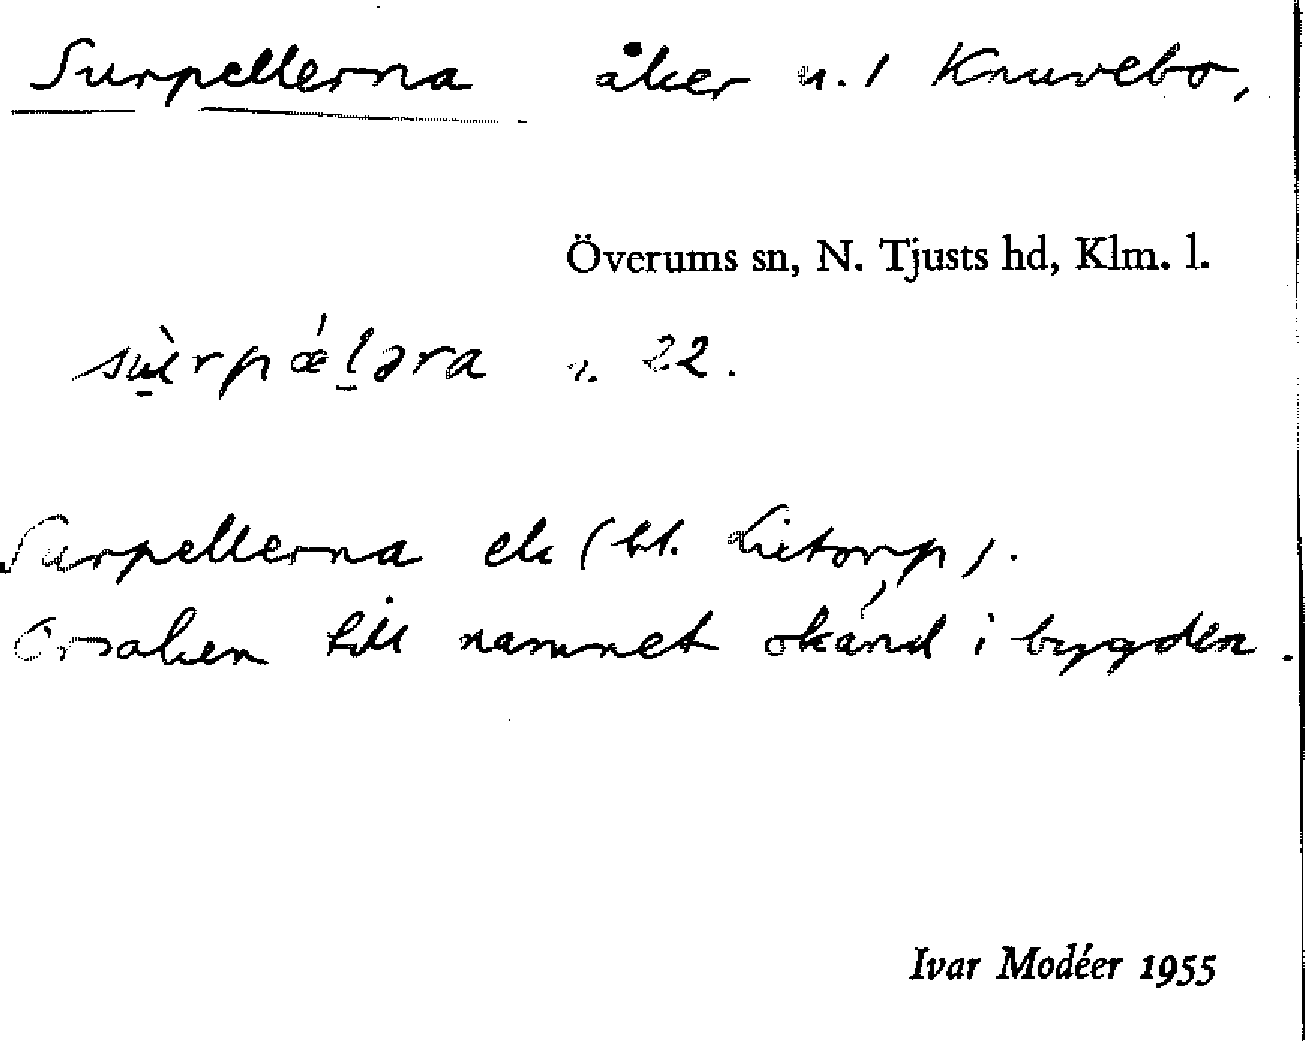 Surpellerna åker u./ Knuvebo,
Överums sn, N. Tjusts hd, Klm. l.
sùrpǽləra n. 22.
Surpellerna ek (bl. Litorp).
Orsaken till namnet okänd i bygden.
Ivar Modéer 1955